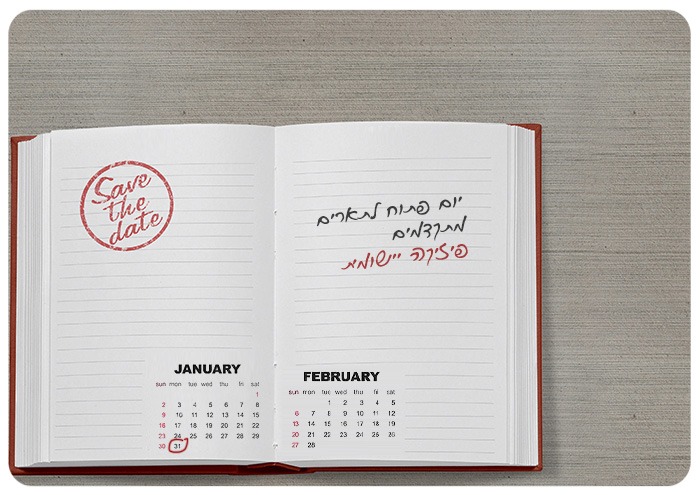 Save
the
date
יום פתוח לתארים
מתקדמים
פיזיקה יישומית
JANUARY
sun mon tue wed thu fri sat
1
2 3 4 5 6 7 8
9 10 11 12 13 14 15
16 17 18 19 20 21 22
23 24 25 26 27 28 29
30 31
FEBRUARY
sun mon tue wed thu fri sat
1 2 3 4 5
6 7 8 9 10 11 12
13 14 15 16 17 18 19
20 21 22 23 24 25 26
27 28